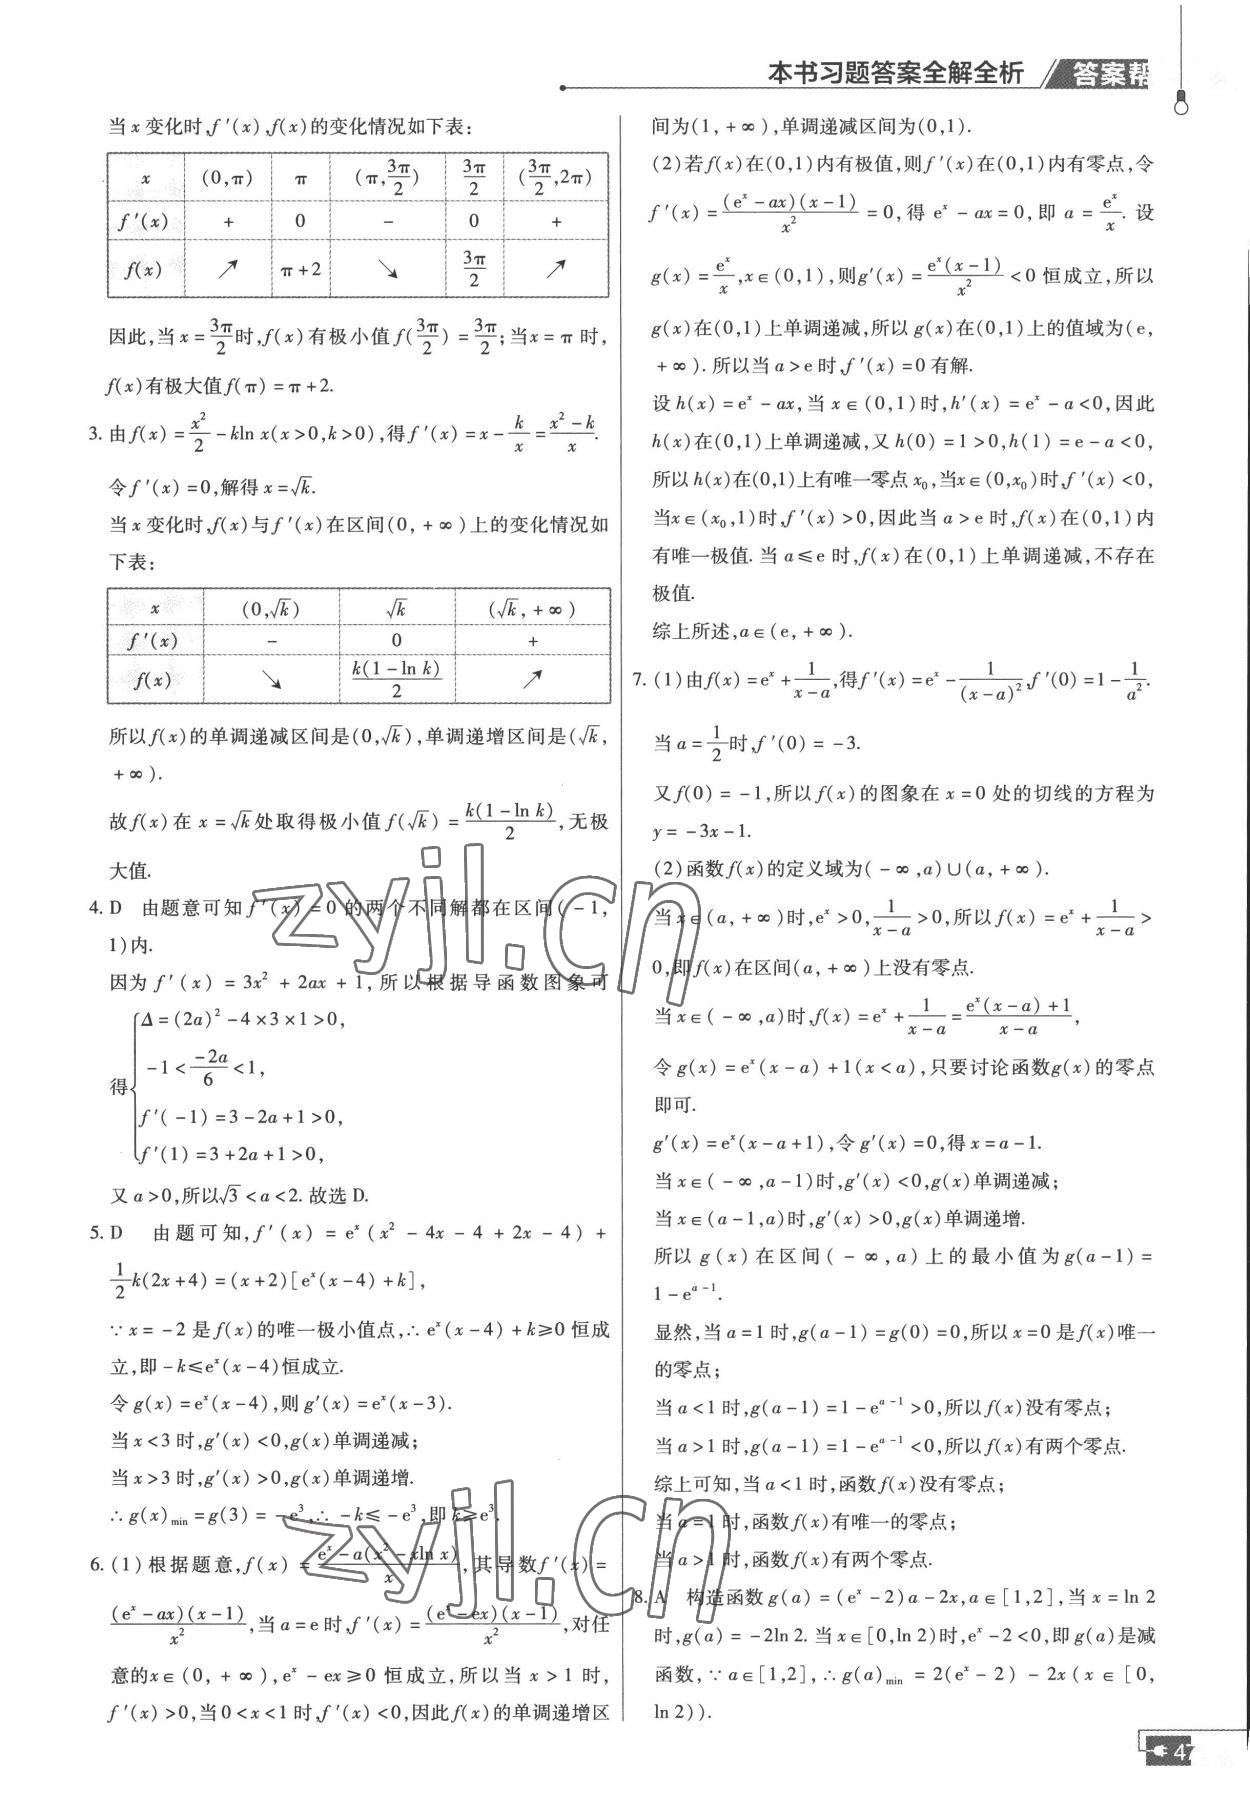 本书习题答案全解全析 答案帮
当 x 变化时,f′(x),f(x)的变化情况如下表:
x (0,π) π (π,3π/2) 3π/2 (3π/2,2π)
f′(x) + 0 − 0 +
f(x) ↗ π+2 ↘ 3π/2 ↗
因此,当 x=3π/2时,f(x)有极小值 f(3π/2)=3π/2;当x=π 时,
f(x)有极大值 f(π)=π+2.
3. 由 f(x)=x²/2−kln x(x>0,k>0),得 f′(x)=x−k/x=(x²−k)/x.
令 f′(x)=0,解得 x=√k.
当 x 变化时,f(x)与 f′(x)在区间(0,+∞)上的变化情况如
下表:
x (0,√k) √k (√k,+∞)
f′(x) − 0 +
f(x) ↘ k(1−ln k)/2 ↗
所以 f(x)的单调递减区间是(0,√k),单调递增区间是(√k,
+∞).
故 f(x)在 x=√k处取得极小值 f(√k)=k(1−ln k)/2,无极
大值.
4. D 由题意可知 f′(x)=0 的两个不同解都在区间(−1,
1)内.
因为 f′(x)=3x²+2ax+1,所以根据导函数图象可
得{Δ=(2a)²−4×3×1>0,
−1<−2a/6<1,
f′(−1)=3−2a+1>0,
f′(1)=3+2a+1>0,
又 a>0,所以√3<a<2. 故选 D.
5. D 由题可知,f′(x)=eˣ(x²−4x−4+2x−4)+
1/2k(2x+4)=(x+2)[eˣ(x−4)+k],
∵x=−2 是 f(x)的唯一极小值点,∴eˣ(x−4)+k≥0 恒成
立,即 −k≤eˣ(x−4)恒成立.
令 g(x)=eˣ(x−4),则 g′(x)=eˣ(x−3).
当 x<3 时,g′(x)<0,g(x)单调递减;
当 x>3 时,g′(x)>0,g(x)单调递增.
∴g(x)min=g(3)=−e³,∴−k≤−e³,即 k≥e³.
6. (1)根据题意,f(x)=(eˣ−a(x²−xln x))/x,其导数 f′(x)=
(eˣ−ax)(x−1)/x²,当 a=e 时,f′(x)=(eˣ−ex)(x−1)/x²,对任
意的x∈(0,+∞),eˣ−ex≥0 恒成立,所以当 x>1 时,
f′(x)>0,当 0<x<1 时,f′(x)<0,因此 f(x)的单调递增区
间为(1,+∞),单调递减区间为(0,1).
(2)若 f(x)在(0,1)内有极值,则 f′(x)在(0,1)内有零点,令
f′(x)=(eˣ−ax)(x−1)/x²=0,得 eˣ−ax=0,即 a=eˣ/x. 设
g(x)=eˣ/x,x∈(0,1),则g′(x)=eˣ(x−1)/x²<0 恒成立,所以
g(x)在(0,1)上单调递减,所以 g(x)在(0,1)上的值域为(e,
+∞). 所以当 a>e 时,f′(x)=0 有解.
设 h(x)=eˣ−ax,当 x∈(0,1)时,h′(x)=eˣ−a<0,因此
h(x)在(0,1)上单调递减,又 h(0)=1>0,h(1)=e−a<0,
所以 h(x)在(0,1)上有唯一零点 x₀,当x∈(0,x₀)时,f′(x)<0,
当x∈(x₀,1)时,f′(x)>0,因此当 a>e 时,f(x)在(0,1)内
有唯一极值. 当 a≤e 时,f(x)在(0,1)上单调递减,不存在
极值.
综上所述,a∈(e,+∞).
7. (1)由f(x)=eˣ+1/(x−a),得f′(x)=eˣ−1/(x−a)²,f′(0)=1−1/a².
当 a=1/2时,f′(0)=−3.
又 f(0)=−1,所以 f(x)的图象在 x=0 处的切线的方程为
y=−3x−1.
(2)函数 f(x)的定义域为(−∞,a)∪(a,+∞).
当 x∈(a,+∞)时,eˣ>0,1/(x−a)>0,所以 f(x)=eˣ+1/(x−a)>
0,即 f(x)在区间(a,+∞)上没有零点.
当 x∈(−∞,a)时,f(x)=eˣ+1/(x−a)=(eˣ(x−a)+1)/(x−a),
令 g(x)=eˣ(x−a)+1(x<a),只要讨论函数g(x)的零点
即可.
g′(x)=eˣ(x−a+1),令 g′(x)=0,得 x=a−1.
当 x∈(−∞,a−1)时,g′(x)<0,g(x)单调递减;
当 x∈(a−1,a)时,g′(x)>0,g(x)单调递增.
所以 g(x)在区间(−∞,a)上的最小值为 g(a−1)=
1−eᵃ⁻¹.
显然,当 a=1 时,g(a−1)=g(0)=0,所以 x=0 是 f(x)唯一
的零点;
当 a<1 时,g(a−1)=1−eᵃ⁻¹>0,所以 f(x)没有零点;
当 a>1 时,g(a−1)=1−eᵃ⁻¹<0,所以 f(x)有两个零点.
综上可知,当 a<1 时,函数 f(x)没有零点;
当 a=1 时,函数 f(x)有唯一的零点;
当 a>1 时,函数 f(x)有两个零点.
8. A 构造函数 g(a)=(eˣ−2)a−2x,a∈[1,2],当 x=ln 2
时,g(a)=−2ln 2. 当 x∈[0,ln 2)时,eˣ−2<0,即 g(a)是减
函数,∵a∈[1,2],∴g(a)min=2(eˣ−2)−2x(x∈[0,
ln 2)).
zyjl.cn
zyjl.cn
47